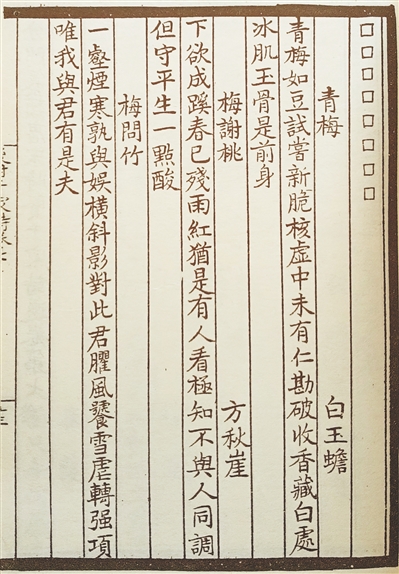 □□□□□□□□
青梅　白玉蟾
青梅如豆試嘗新脆核虛中未有仁勘破收香藏白處
冰肌玉骨是前身
梅謝桃　方秋崖
下欲成蹊春已殘雨紅猶是有人看極知不與人同調
但守平生一點酸
梅問竹
一壑煙寒孰與娛橫斜影對此君臞風饕雪虐轉强項
唯我與君有是夫